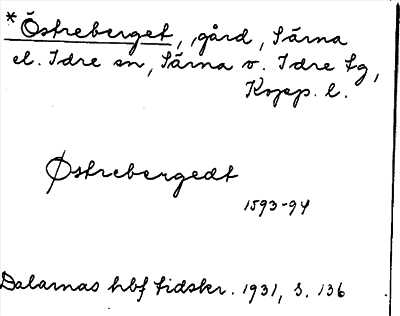 * Östreberget, gård, Särna
el. Idre sn, Särna o. Idre tg,
Kopp. l.
Østrebergedt
1593-94
Dalarnas hbf tidskr. 1931, s. 136